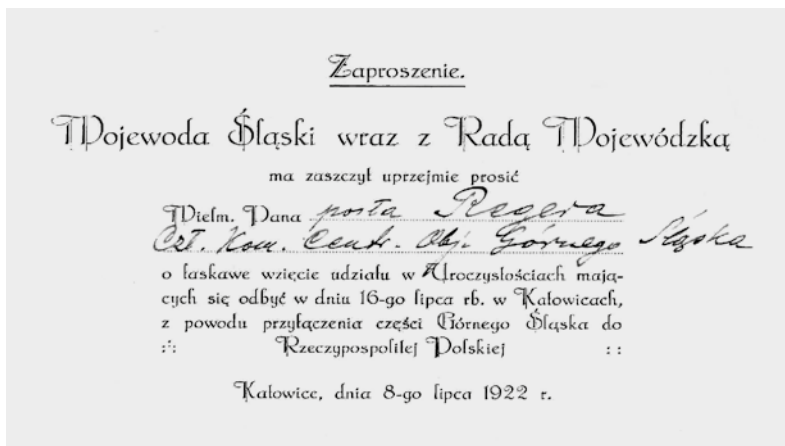 Zaproszenie.
Wojewoda Śląski wraz z Radą Wojewódzką
ma zaszczyt uprzejmie prosić
Wielm. Pana posła Regera
Czł. Kom. Centr. Obj. Górnego Śląska
o łaskawe wzięcie udziału w Uroczystościach mają-
cych się odbyć w dniu 16-go lipca rb. w Katowicach,
z powodu przyłączenia części Górnego Śląska do
Rzeczypospolitej Polskiej
Katowice, dnia 8-go lipca 1922 r.